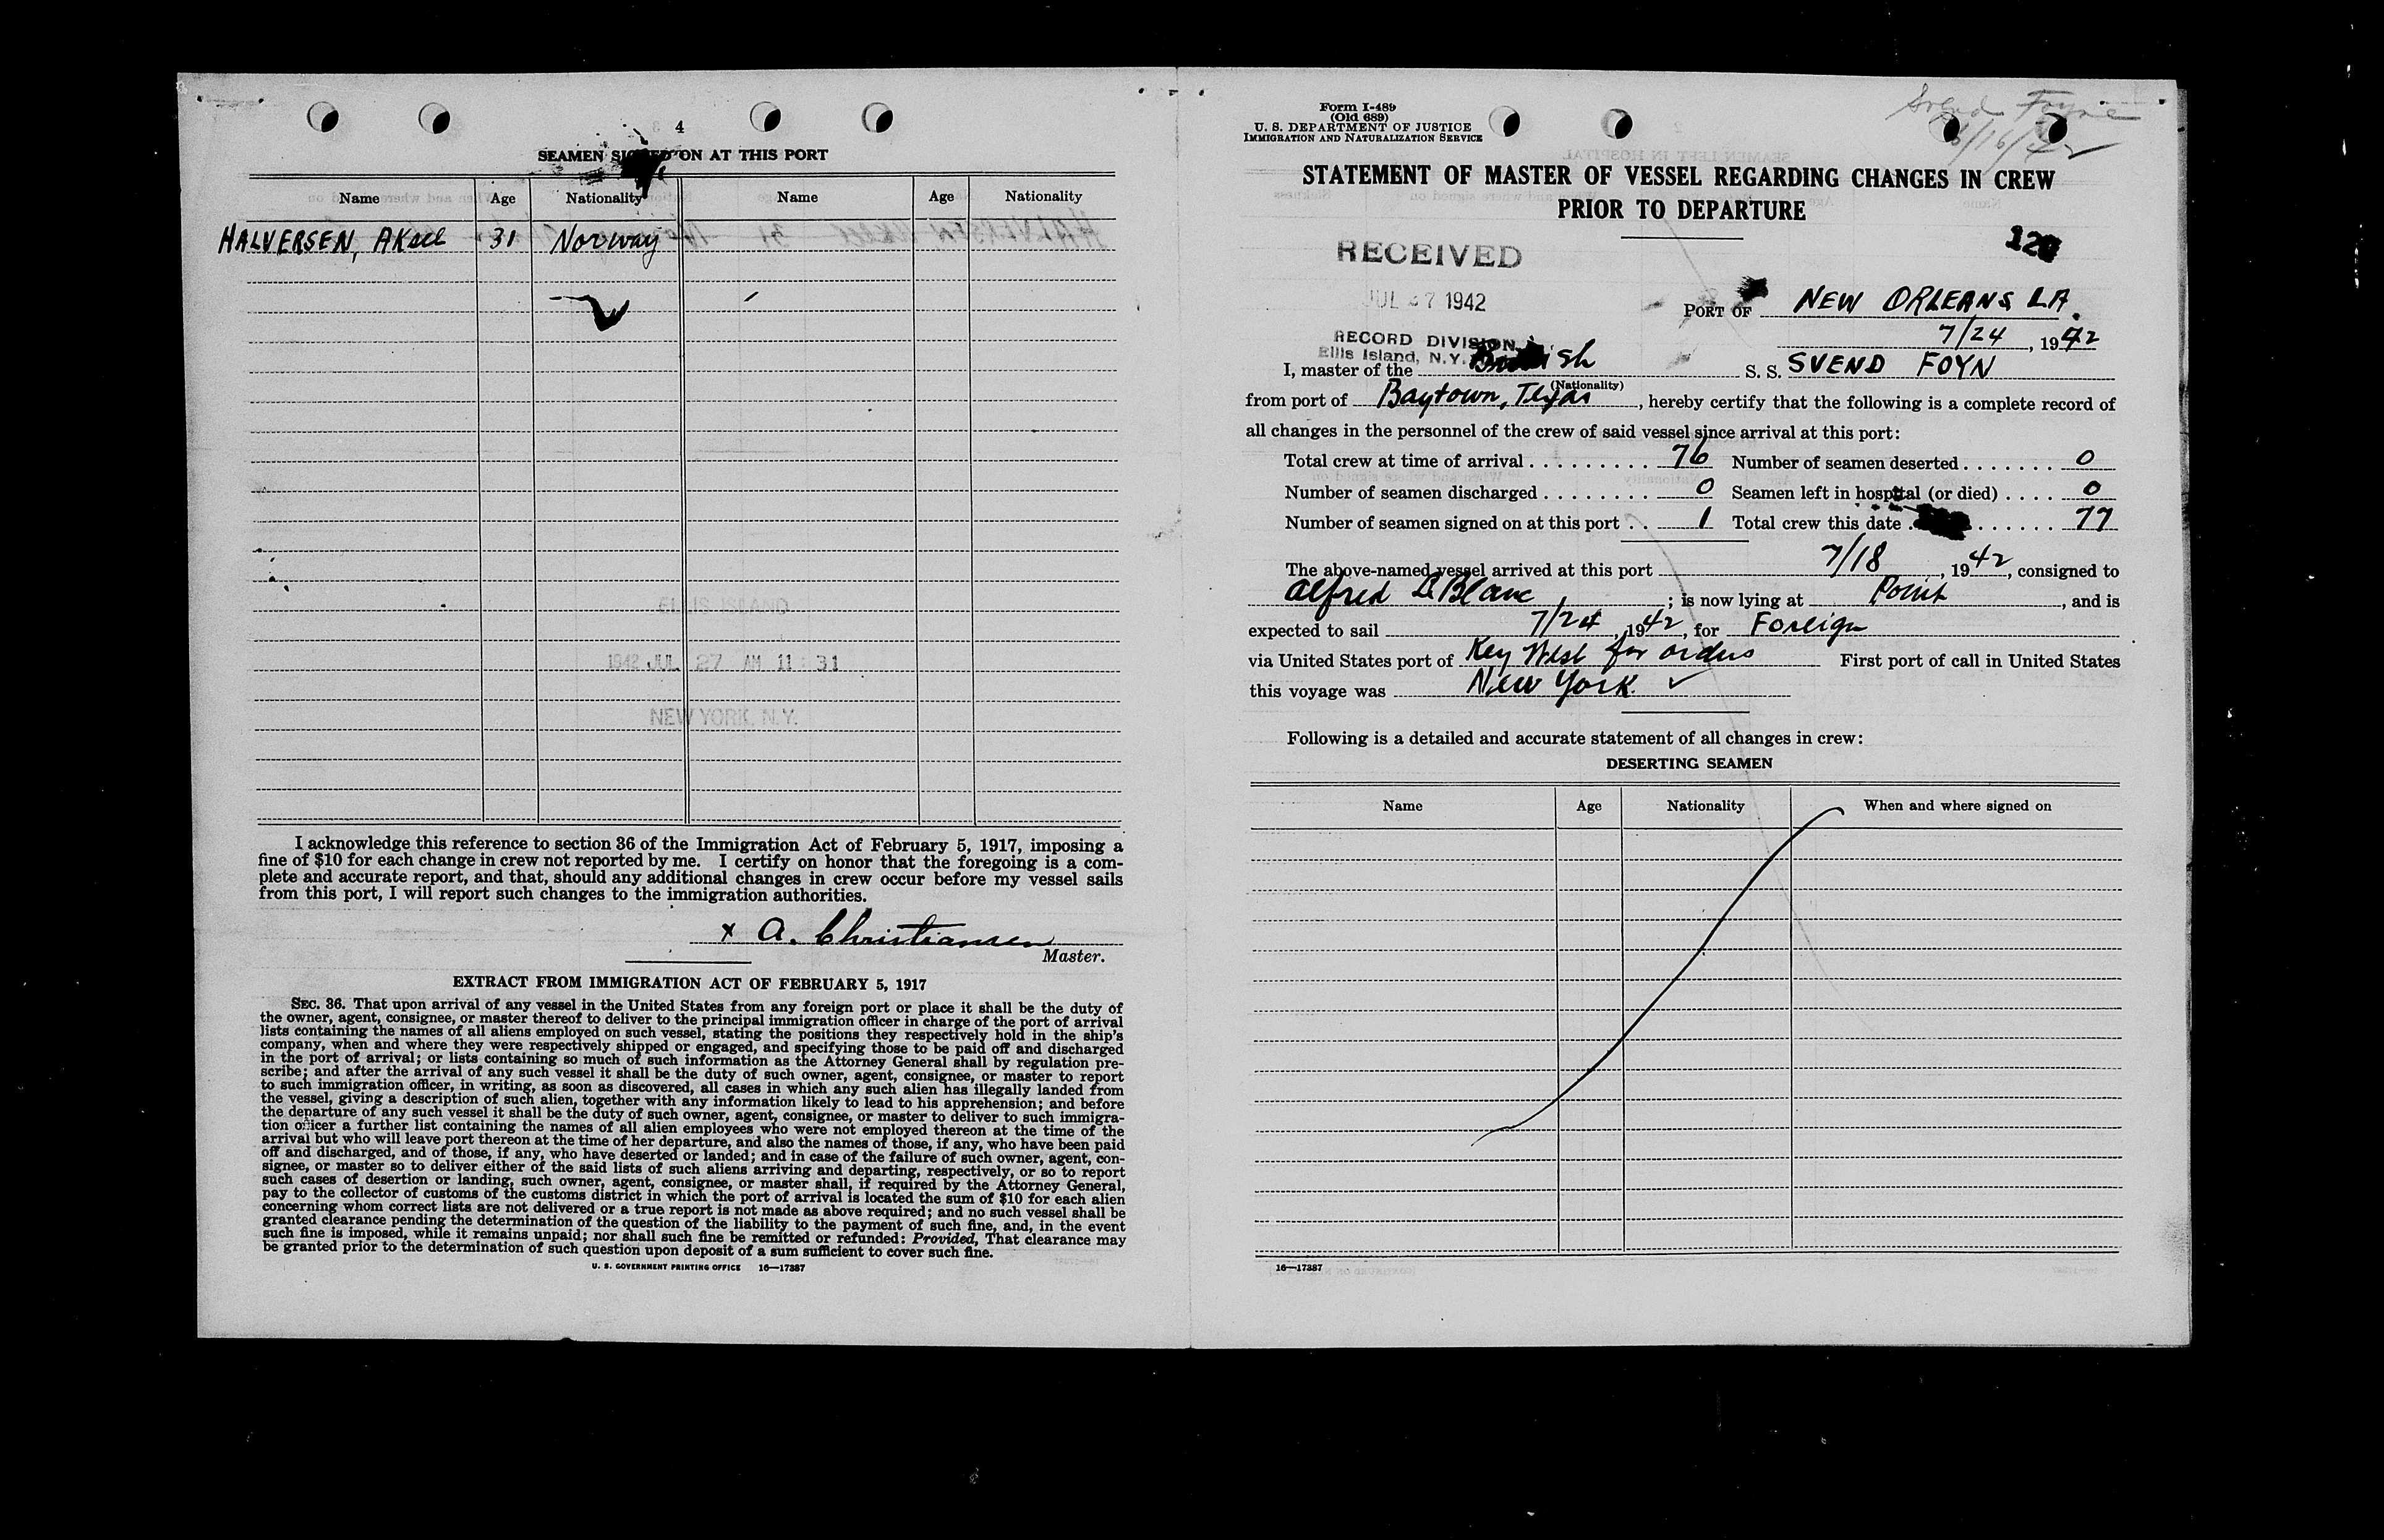 4
SEAMEN SIGNED ON AT THIS PORT
Name Age Nationality Name Age Nationality
HALVERSEN, AKsel 31 Norway
ELLIS ISLAND
1942 JUL 27 AM 11:31
NEW YORK, N.Y.
I acknowledge this reference to section 36 of the Immigration Act of February 5, 1917, imposing a
fine of $10 for each change in crew not reported by me. I certify on honor that the foregoing is a com-
plete and accurate report, and that, should any additional changes in crew occur before my vessel sails
from this port, I will report such changes to the immigration authorities.
x A. Christiansen
Master.
EXTRACT FROM IMMIGRATION ACT OF FEBRUARY 5, 1917
SEC. 36. That upon arrival of any vessel in the United States from any foreign port or place it shall be the duty of
the owner, agent, consignee, or master thereof to deliver to the principal immigration officer in charge of the port of arrival
lists containing the names of all aliens employed on such vessel, stating the positions they respectively hold in the ship's
company, when and where they were respectively shipped or engaged, and specifying those to be paid off and discharged
in the port of arrival; or lists containing so much of such information as the Attorney General shall by regulation pre-
scribe; and after the arrival of any such vessel it shall be the duty of such owner, agent, consignee, or master to report
to such immigration officer, in writing, as soon as discovered, all cases in which any such alien has illegally landed from
the vessel, giving a description of such alien, together with any information likely to lead to his apprehension; and before
the departure of any such vessel it shall be the duty of such owner, agent, consignee, or master to deliver to such immigra-
tion officer a further list containing the names of all alien employees who were not employed thereon at the time of the
arrival but who will leave port thereon at the time of her departure, and also the names of those, if any, who have been paid
off and discharged, and of those, if any, who have deserted or landed; and in case of the failure of such owner, agent, con-
signee, or master so to deliver either of the said lists of such aliens arriving and departing, respectively, or so to report
such cases of desertion or landing, such owner, agent, consignee, or master shall, if required by the Attorney General,
pay to the collector of customs of the customs district in which the port of arrival is located the sum of $10 for each alien
concerning whom correct lists are not delivered or a true report is not made as above required; and no such vessel shall be
granted clearance pending the determination of the question of the liability to the payment of such fine, and, in the event
such fine is imposed, while it remains unpaid; nor shall such fine be remitted or refunded: Provided, That clearance may
be granted prior to the determination of such question upon deposit of a sum sufficient to cover such fine.
U. S. GOVERNMENT PRINTING OFFICE 16—17387
Form I-489
(Old 689)
U. S. DEPARTMENT OF JUSTICE
IMMIGRATION AND NATURALIZATION SERVICE
Svend Foyne
STATEMENT OF MASTER OF VESSEL REGARDING CHANGES IN CREW
PRIOR TO DEPARTURE
RECEIVED
JUL 27 1942
RECORD DIVISION
Ellis Island, N.Y.
PORT OF NEW ORLEANS LA.
7/24, 1942
I, master of the British S. S. SVEND FOYN
(Nationality)
from port of Baytown, Texas, hereby certify that the following is a complete record of
all changes in the personnel of the crew of said vessel since arrival at this port:
Total crew at time of arrival . . . . . . . . . 76 Number of seamen deserted . . . . . . . 0
Number of seamen discharged . . . . . . . . 0 Seamen left in hospital (or died) . . . . 0
Number of seamen signed on at this port . . 1 Total crew this date . . . . . . . 77
The above-named vessel arrived at this port 7/18, 1942, consigned to
Alfred LeBlanc; is now lying at Point, and is
expected to sail 7/24, 1942, for Foreign
via United States port of Key West for orders First port of call in United States
this voyage was New York ✓
Following is a detailed and accurate statement of all changes in crew:
DESERTING SEAMEN
Name Age Nationality When and where signed on
16—17387